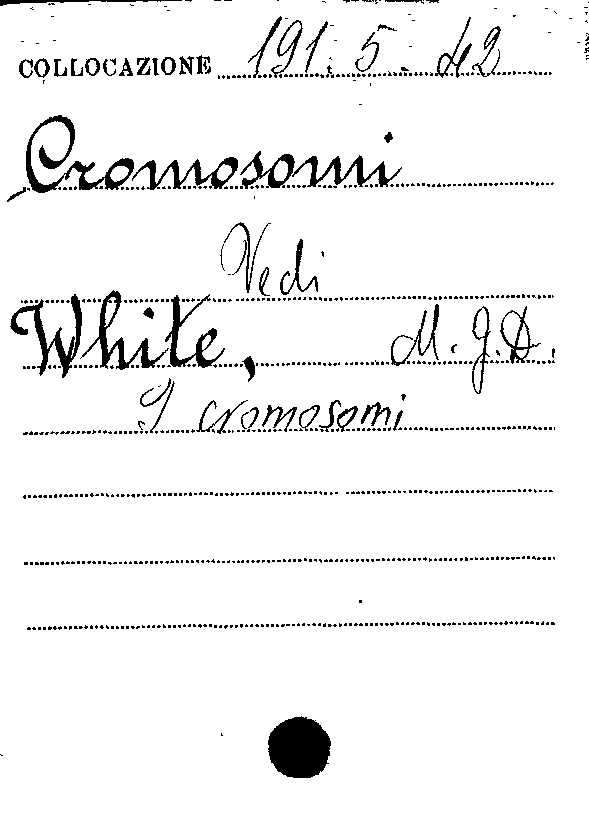 COLLOCAZIONE 191. 5. 42
Cromosomi
Vedi
White, M. J. D.
I cromosomi